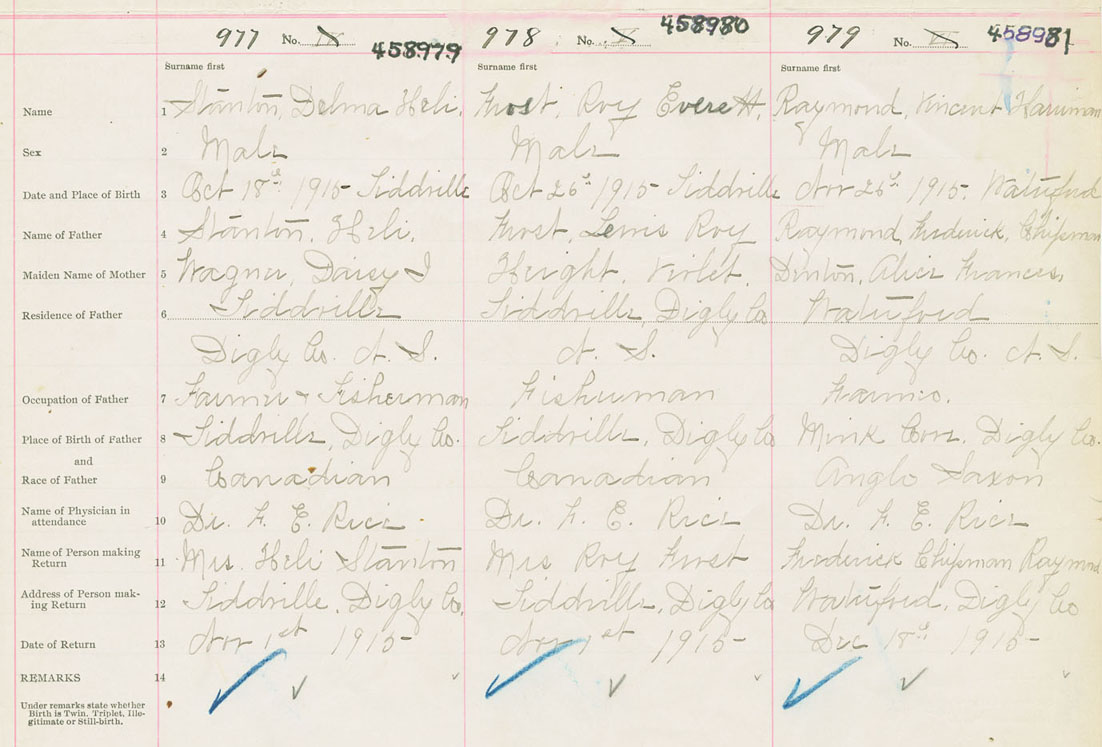 977 No. IX 458979 978 No. X 458980 979 No. 458981
Surname first Surname first Surname first
Name 1 Stanton, Delma Heli. Frost, Roy Everett. Raymond, Vincent Harriman
Sex 2 Male Male Male
Date and Place of Birth 3 Oct 18th 1915 Oct 1915 Nov 1915 Waterford
Name of Father 4 Stanton, Heli. Frost, Lewis Roy Raymond, Frederick, Chipman
Maiden Name of Mother 5 Wagner, Daisy Height, Violet. Denton, Alice Frances,
Residence of Father 6 Digby Co Waterford
Digby Co. N. S. N. S. Digby Co. N. S.
Occupation of Father 7 Farmer & Fisherman Fisherman
Place of Birth of Father 8 Digby Co. Digby Co Mink Cove, Digby Co.
and
Race of Father 9 Canadian Canadian Anglo Saxon
Name of Physician in
attendance 10 Dr. F. E. Rice Dr. F. E. Rice Dr. F. E. Rice
Name of Person making
Return 11 Mrs. Heli Stanton Mrs Roy Frost Frederick Chipman Raymond
Address of Person mak-
ing Return 12 Digby Co, Digby Co Waterford, Digby Co
Date of Return 13 Nov 1st 1915 Nov 1st 1915 Dec 18th 1915
REMARKS 14
Under remarks state whether
Birth is Twin, Triplet, Ille-
gitimate or Still-birth.